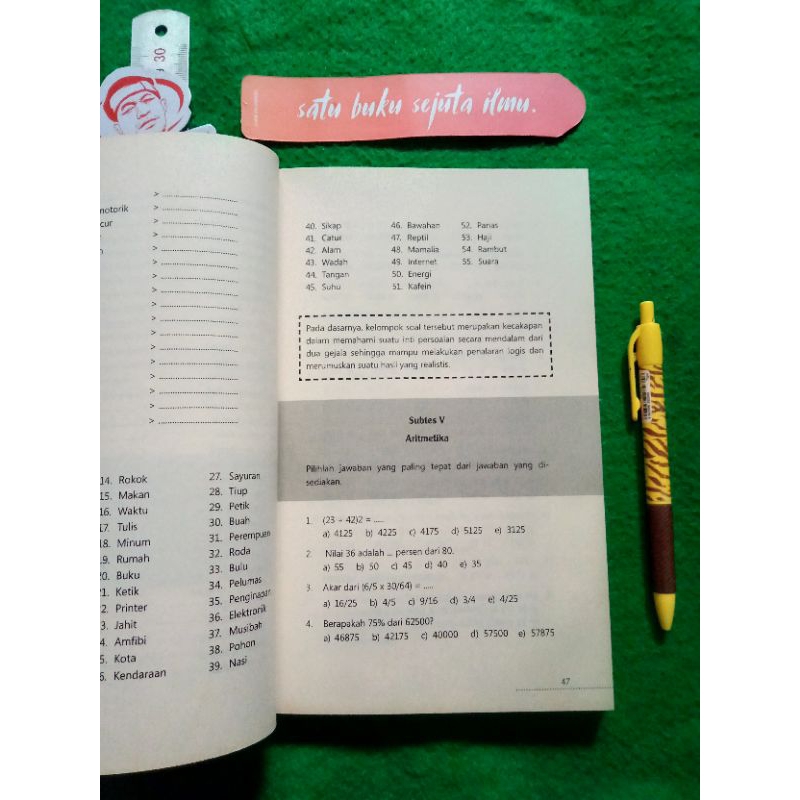 30
satu buku sejuta ilmu.
> ....................
notorik > ....................
cur > ....................
> ....................
> ....................
> ....................
> ....................
> ....................
> ....................
> ....................
> ....................
> ....................
> ....................
> ....................
> ....................
> ....................
> ....................
14. Rokok
15. Makan
16. Waktu
17. Tulis
18. Minum
19. Rumah
20. Buku
21. Ketik
22. Printer
3. Jahit
4. Amfibi
5. Kota
6. Kendaraan
27. Sayuran
28. Tiup
29. Petik
30. Buah
31. Perempuan
32. Roda
33. Bulu
34. Pelumas
35. Penginapan
36. Elektronik
37. Musibah
38. Pohon
39. Nasi
40. Sikap
41. Catur
42. Alam
43. Wadah
44. Tangan
45. Suhu
46. Bawahan
47. Reptil
48. Mamalia
49. Internet
50. Energi
51. Kafein
52. Panas
53. Haji
54. Rambut
55. Suara
Pada dasarnya, kelompok soal tersebut merupakan kecakapan
dalam memahami suatu inti persoalan secara mendalam dari
dua gejala sehingga mampu melakukan penalaran logis dan
merumuskan suatu hasil yang realistis.
Subtes V
Aritmetika
Pilihlah jawaban yang paling tepat dari jawaban yang di-
sediakan.
1. (23 + 42)2 = .....
a) 4125 b) 4225 c) 4175 d) 5125 e) 3125
2. Nilai 36 adalah ... persen dari 80.
a) 55 b) 50 c) 45 d) 40 e) 35
3. Akar dari (6/5 x 30/64) = .....
a) 16/25 b) 4/5 c) 9/16 d) 3/4 e) 4/25
4. Berapakah 75% dari 62500?
a) 46875 b) 42175 c) 40000 d) 57500 e) 57875
47